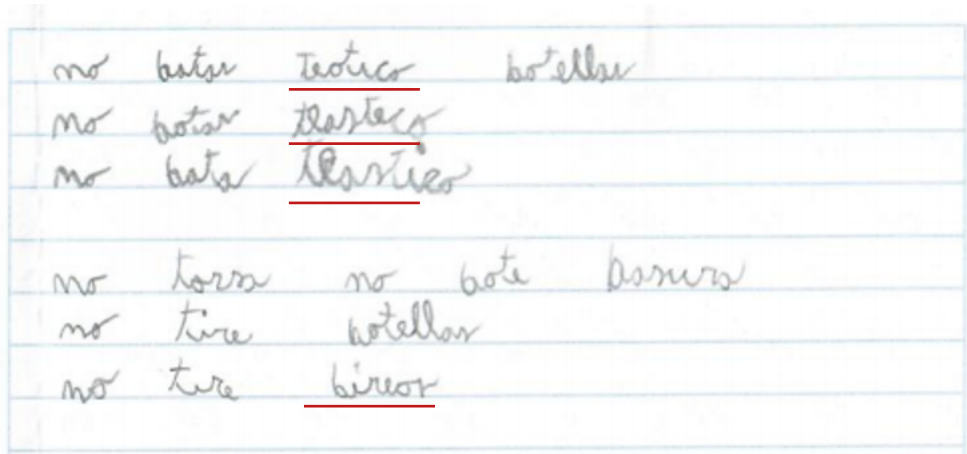 no batar teotico botellar
no botar tlasteco
no bata tlastico
no torsa no bote basura
no tire botellas
no tire bireos